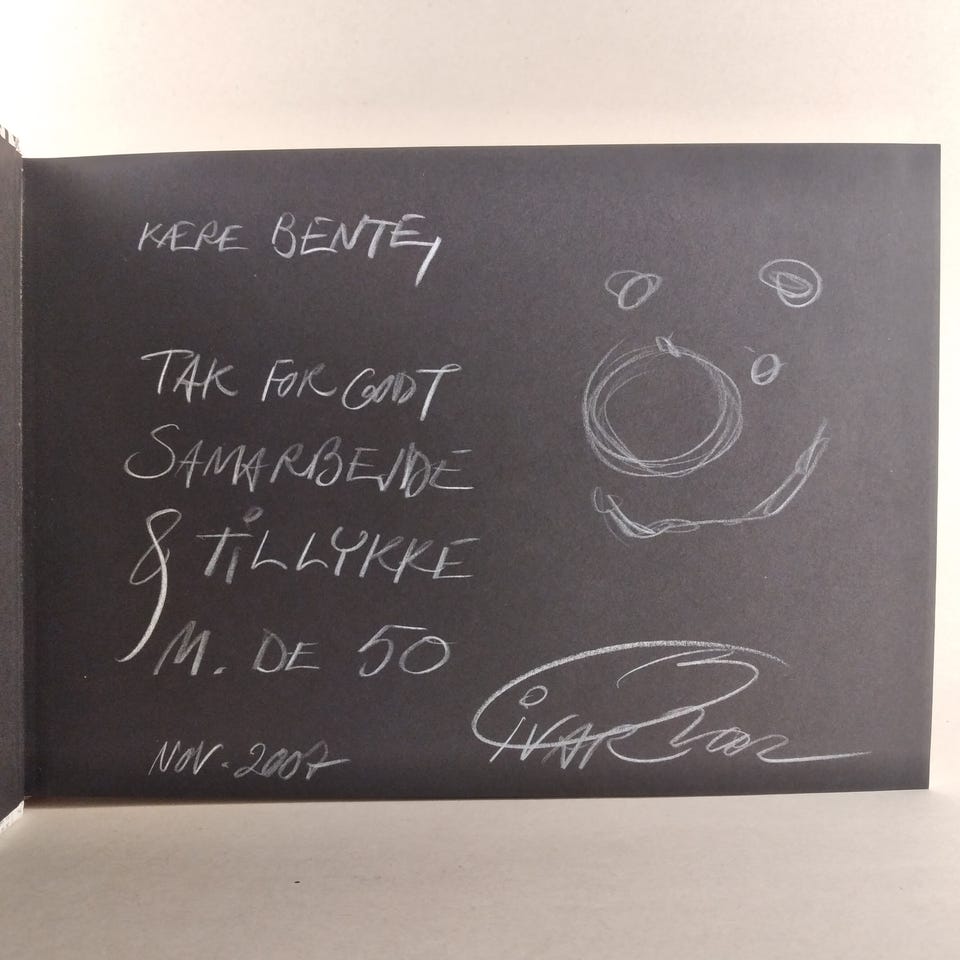 KÆRE BENTE,
TAK FOR GODT
SAMARBEJDE
& TILLYKKE
M. DE 50
NOV. 2007
IVAR